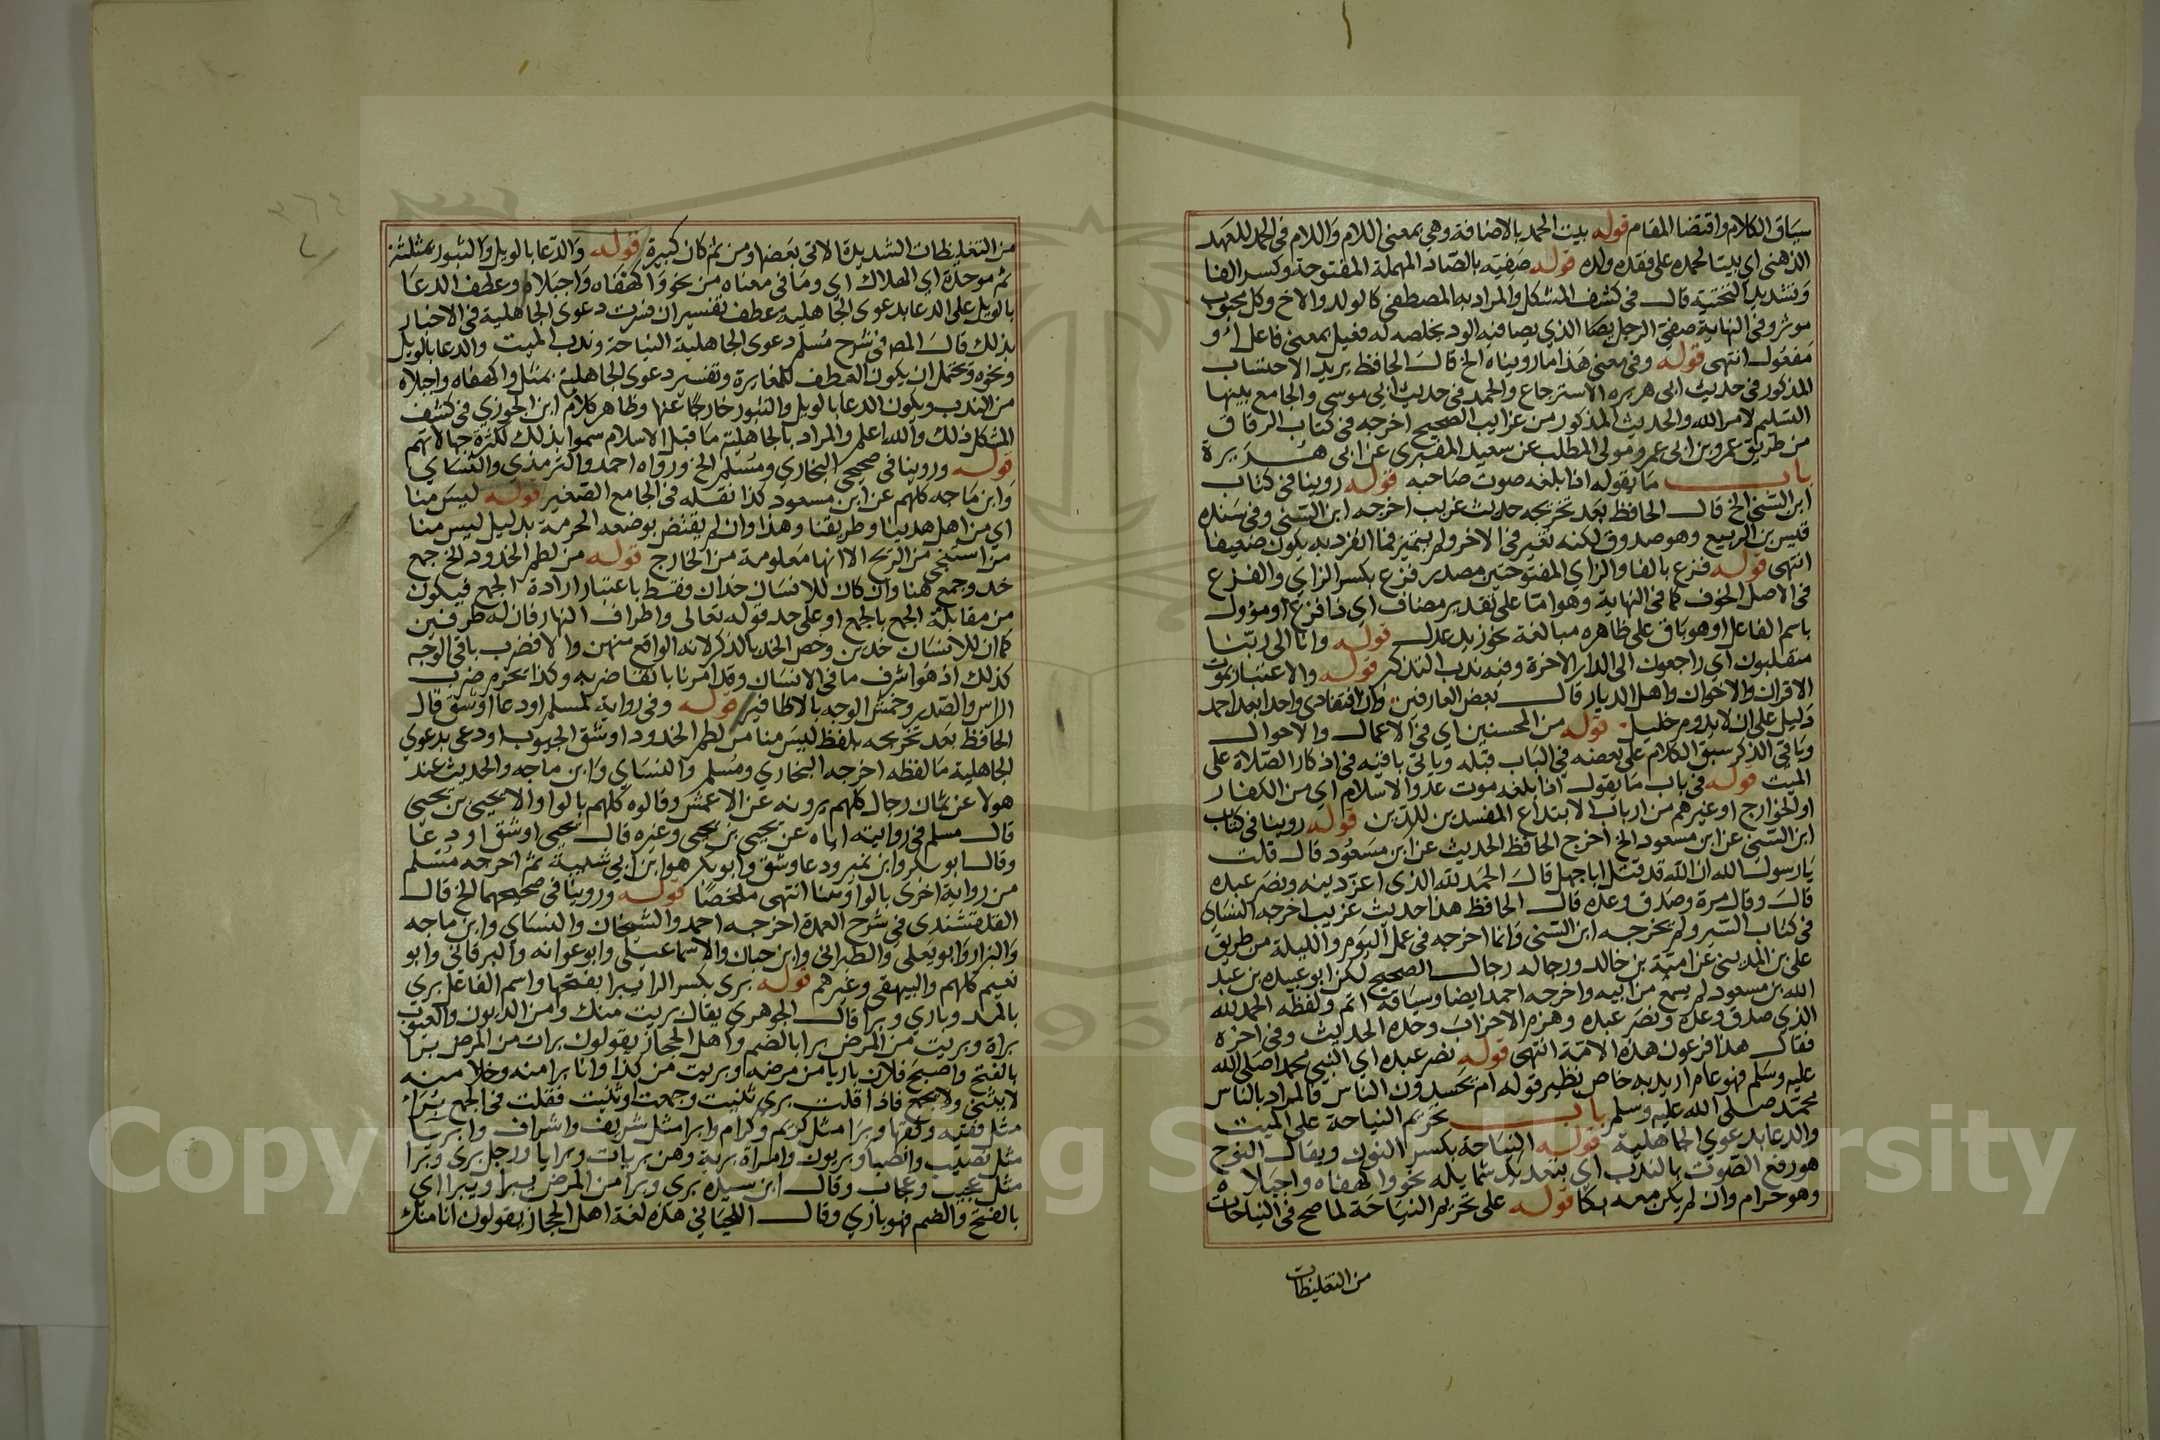 سياق الكلام واقتضا المقام قوله بيت الحمد بالاضافة وهي بمعنى اللام واللام في الحمد للعهد
الذهني اي بيتا لحمده على فقده ولده قوله صفيه بالصاد المهملة المفتوحة وكسر الفا
وتشديد التحتية قال في كشف المشكل والمراد به المصطفى كالولد والاخ وكل محبوب
موثر وفي النهاية صفي الرجل الذي يصافيه الود ويخلصه له فعيل بمعنى فاعل او
مفعول انتهى قوله وفي معنى هذا ما رويناه الخ قال الحافظ يريد الاحتساب
المذكور في حديث ابي هريره الاسترجاع والحمد في حديث ابي موسى والجامع بينها
التسليم لامر الله والحديث المذكور من غرايب الصحيح اخرجه في كتاب الرقاق
من طريق عمرو بن ابي عمرو مولى المطلب عن سعيد المقبري عن ابي هريرة
باب ما يقوله اذا بلغه موت صاحبه قوله روينا في كتاب
ابن السني الخ قال الحافظ بعد تخريجه حديث غريب اخرجه ابن السني وفي سنده
قيس بن الربيع وهو صدوق لكنه تغير في الاخر ولم يتميز فما انفرد به يكون ضعيفا
انتهى قوله فزع بالفا والزاي المفتوحتين مصدر فزع بكسر الزاي والفزع
في الاصل الخوف كما في النهاية وهو اما على تقدير مضاف اي ذا فزع او مؤول
باسم الفاعل او هو باق على ظاهره مبالغة نحو زيد عدل قوله وانا الى ربنا
منقلبون اي راجعون الى الدار الاخرة وفيه ندب التذكر قوله والاعتبار بموت
الاقران والاخوان واهل الديار قال بعض العارفين وان افتقادي واحدا بعد احمد
دليل على ان لا يدوم خليل قوله من المحسنين اي في الاعمال والاحوال
وباقي الذكر سبق الكلام على بعضه في الباب قبله وياتي باقيه في اذكار الصلاة على
الميت قوله في باب ما يقول اذا بلغه موت عدو الاسلام اي من الكفار
او الخوارج او غيرهم من ارباب الابتداع المفسدين للدين قوله روينا في كتاب
ابن السني عن ابن مسعود الخ اخرج الحافظ الحديث عن ابن مسعود قال قلت
يا رسول الله ان الله قد قتل ابا جهل قال الحمد لله الذي اعز دينه ونصر عبده
قال وقال مرة وصدق وعده قال الحافظ هذا حديث غريب اخرجه النسائ
في كتاب السير ولم يخرجه ابن السني وانما اخرجه في عمل اليوم والليلة من طريق
علي بن المديني عن امية بن خالد ورجاله رجال الصحيح لكن ابو عبيده بن عبد
الله بن مسعود لم يسمع من ابيه واخرجه احمد ايضا وسياقه اتم ولفظه الحمد لله
الذي صدق وعده ونصر عبده وهزم الاحزاب وحده الحديث وفي اخره
فقال هذا فرعون هذه الامة انتهى قوله نصر عبده اي النبي محمدا صلى الله
عليه وسلم فهو عام اريد به خاص نظير قوله ام يحسدون الناس فالمراد بالناس
محمد صلى الله عليه وسلم باب تحريم النياحة على الميت
والدعا بدعوى الجاهلية قوله النياحة بكسر النون ويقال النوح
هو رفع الصوت بالندب اي بتعديد شمايله نحو واكهفاه واجبلاه
وهو حرام وان لم يكن معه بكا قوله على تحريم النياحة لما صح في النياحات
من التغليظات
من التغليظات الشديدة الاتي بعضها ومن ثم كان كبيرة قوله والدعا بالويل والثبور بمثلثة
ثم موحدة اي الهلاك اي وما في معناه من نحو واكهفاه واجبلاه وعطف الدعا
بالويل على الدعا بدعوى الجاهلية عطف تفسير ان فسرت دعوى الجاهلية في الاخبار
بذلك قال المص في شرح مسلم دعوى الجاهلية النياحة وندب الميت والدعا بالويل
ونحوه ويحتمل ان يكون العطف للمغايرة وتفسير دعوى الجاهلية بمثل واكهفاه واجبلاه
من الندب ويكون الدعا بالويل والثبور خارجا عنها وظاهر كلام ابن الجوزي في كشف
المشكل ذلك والله اعلم والمراد بالجاهلية ما قبل الاسلام سموا بذلك لكثرة جهالاتهم
قوله وروينا في صحيحي البخاري ومسلم الخ ورواه احمد والترمذي والنساي
وابن ماجه كلهم عن ابن مسعود كذا نقله في الجامع الصغير قوله ليس منا
اي من اهل هدينا وطريقنا وهذا وان لم يقتض بوضعه الحرمة بدليل ليس منا
من استنجى من الريح الا انها معلومة من الخارج قوله من لطم الخدود الخ جمع
خد وجمع هنا وان كان للانسان خدان فقط باعتبار ارادة الجمع فيكون
من مقابلة الجمع بالجمع او على حد قوله تعالى واطراف النهار فان له طرفين
كما ان للانسان خدين وخص الخد بالذكر لانه الواقع منهن والا فضرب باقي الوجه
كذلك اذ هو اشرف ما في الانسان وقد امرنا باتقا ضربه وكذا يحرم ضرب
الراس والصدر وخمش الوجه بالاظافير قوله وفي رواية لمسلم او دعا او شق قال
الحافظ بعد تخريجه بلفظ ليس منا من لطم الخدود او شق الجيوب او دعى بدعوى
الجاهلية ما لفظه اخرجه البخاري ومسلم والنساي وابن ماجه والحديث عند
هولا عن ثمان رجال كلهم يرونه عن الاعمش وقالوه كلهم بالواو الا يحيى بن يحيى
قال مسلم في روايته اياه عن يحيى بن يحيى وغيره قال يحيى او شق او دعا
وقال ابو بكر وابن نمير ودعا وشق وابو بكر هو ابن ابي شيبة ثم اخرجه مسلم
من رواية اخرى بالواو منا انتهى ملخصا قوله وروينا في صحيحيهما الخ قال
القلقشندي في شرح العمدة اخرجه احمد والشيخان والنساي وابن ماجه
والبزار وابو يعلى والطبراني وابن حبان والاسماعيلي وابو عوانه والبرقاني وابو
نعيم كلهم والبيهقي وغيرهم قوله بري بكسر الرا يبرا بفتحها واسم الفاعل بري
بالمد وباري وبرا قال الجوهري يقال بريت منك ومن الديون والعيوب
براة وبريت من المرض برا بالضم واهل الحجاز يقولون برات من المرض برا
بالفتح واصبح فلان باريا من مرضه وبريت من كذا وانا برا منه وخلا منه
لا يثنى ولا يجمع فاذا قلت بري ثنيت وجمعت وثنيت فقلت في الجمع براء
مثل فقيه وفقها وبرا مثل كريم وكرام وابرا مثل شريف واشراف وابريا
مثل نصيب وانصبا وبريون وامراة برية وهن بريات وبرايا ورجل بري وبرا
مثل عجيب وعجاب وقال ابن سيده بري وبرا من المرض يبرا ويبرا اي
بالفتح والضم فهو باري وقال اللحياني هذه لغة اهل الحجاز يقولون انا منك
Copyright King Saud University